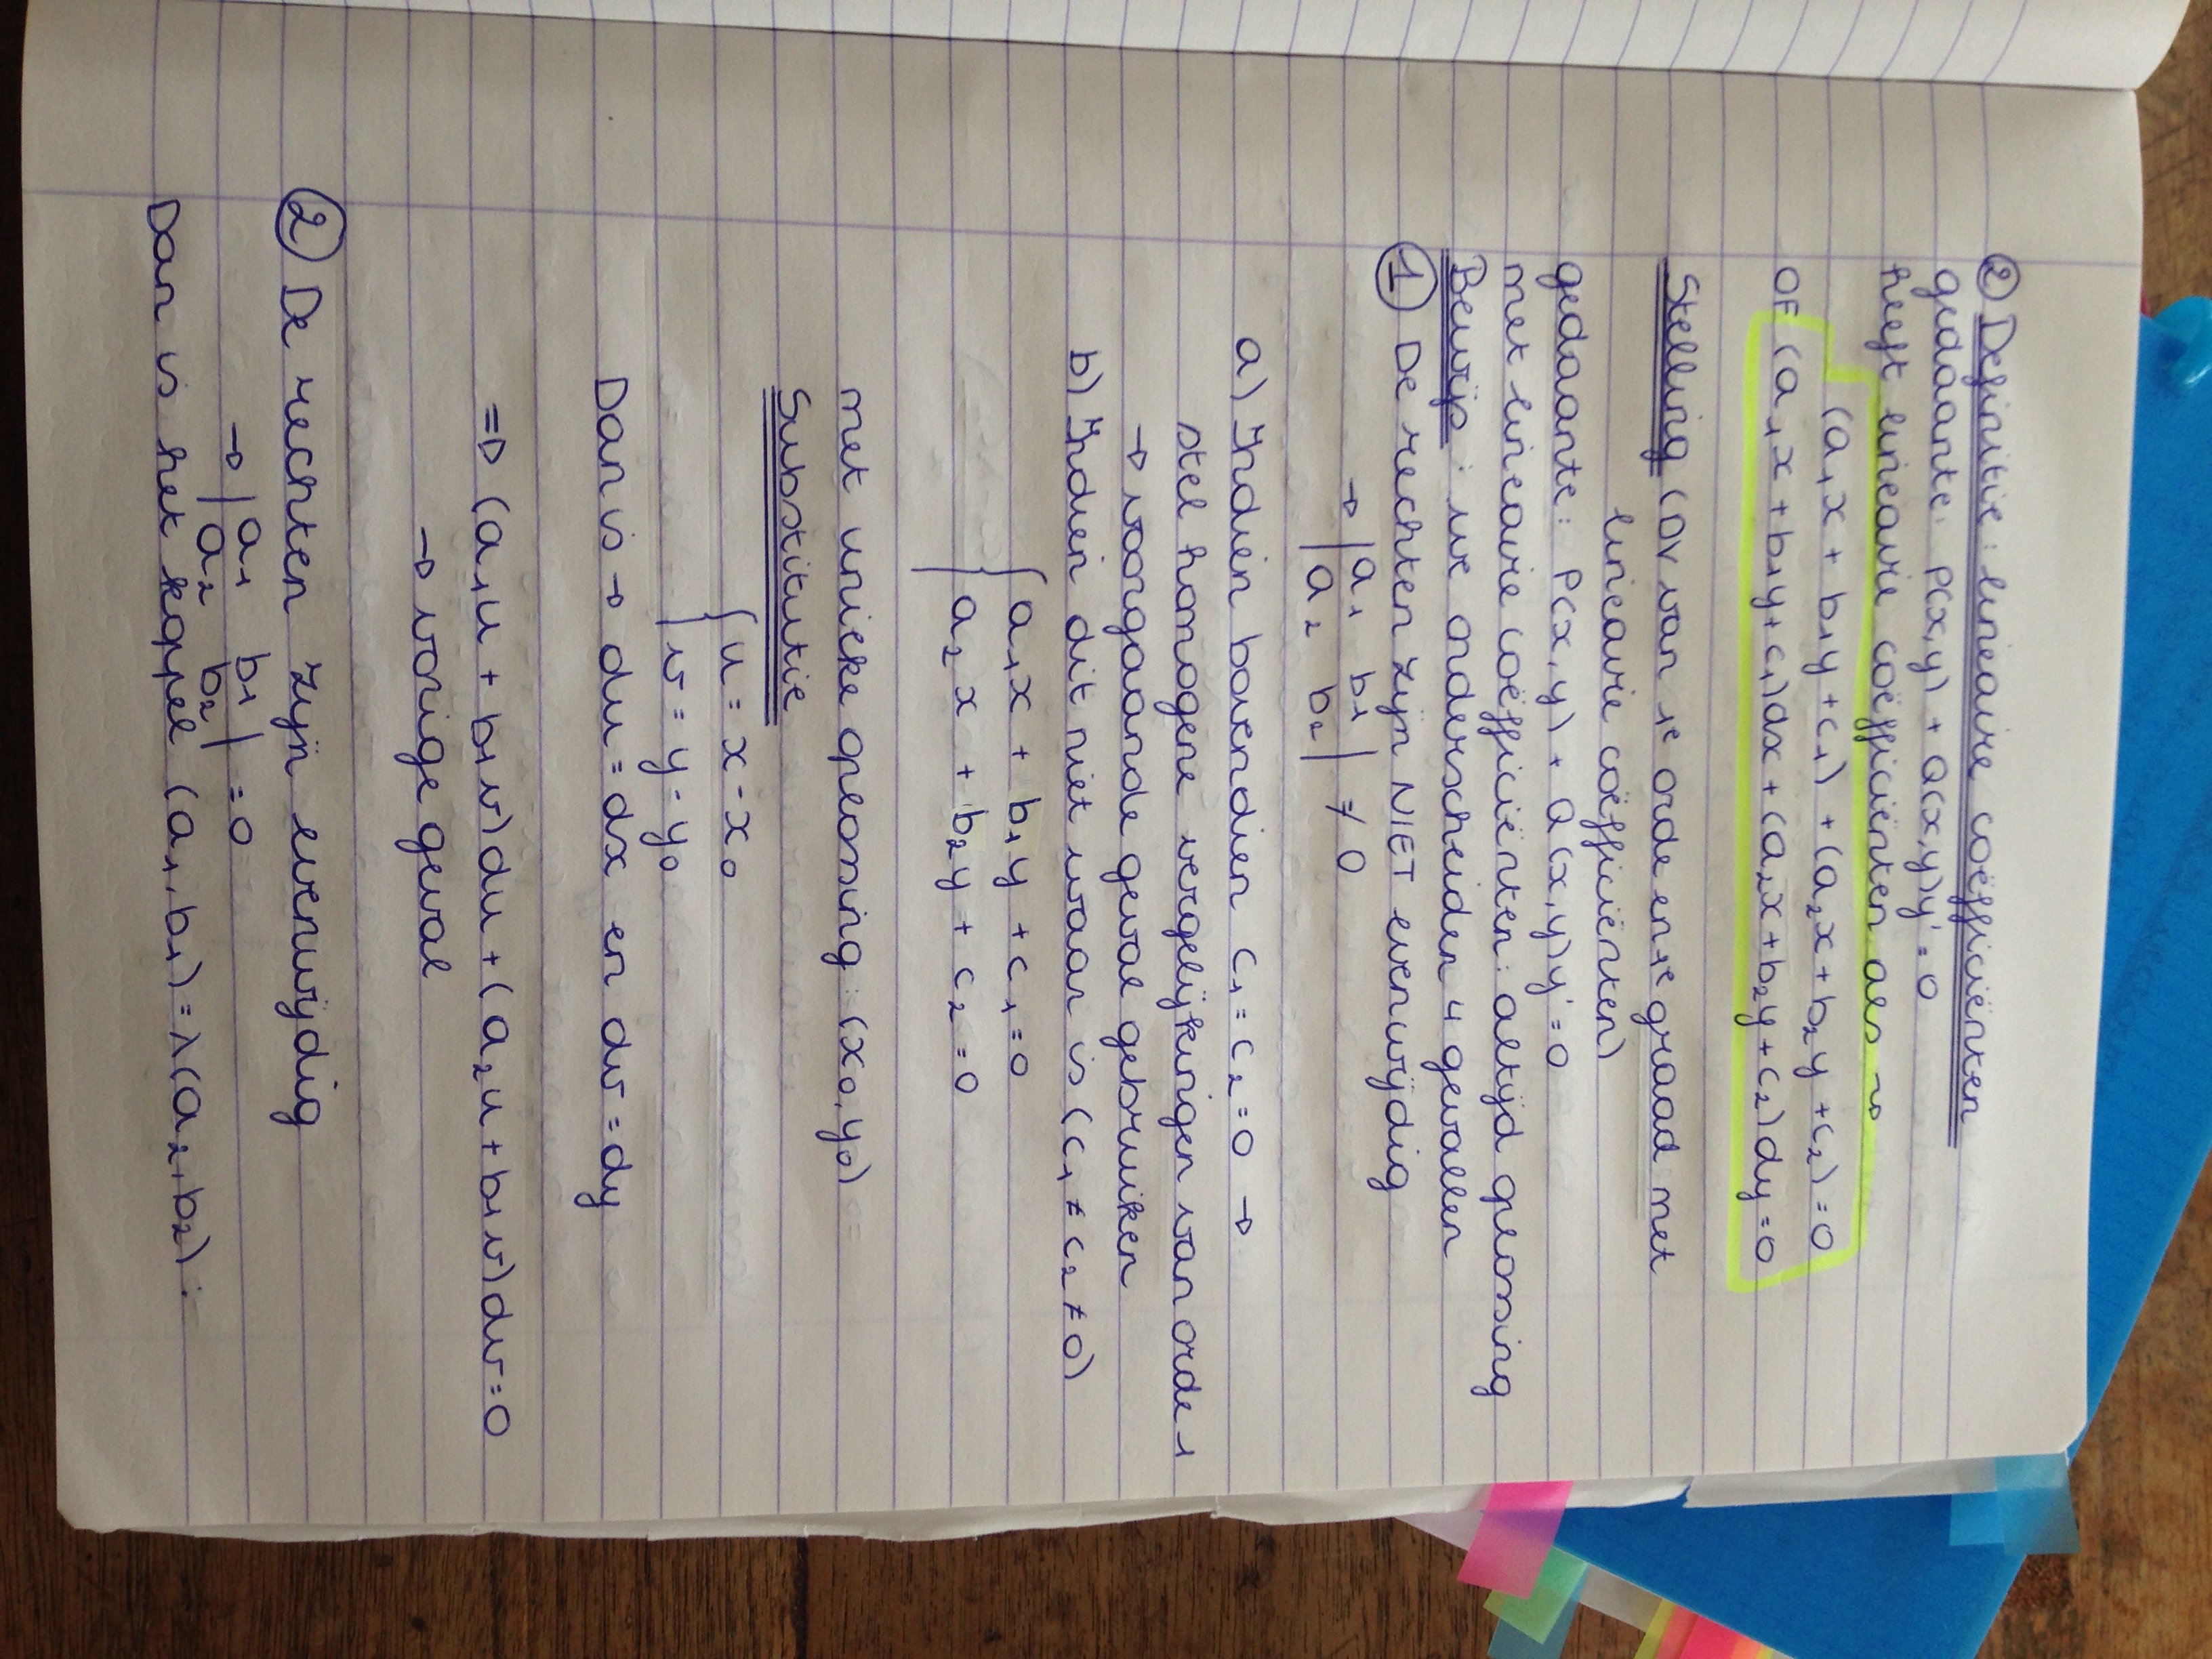 ② Definitie: lineaire coëfficiënten
gedaante: P(x,y) + Q(x,y)y' = 0
heeft lineaire coëfficiënten als →
(a₁x + b₁y + c₁) + (a₂x + b₂y + c₂) = 0
OF (a₁x + b₁y + c₁)dx + (a₂x + b₂y + c₂)dy = 0
Stelling (DV van 1e orde en 1e graad met
lineaire coëfficiënten)
gedaante: P(x,y) + Q(x,y)y' = 0
met lineaire coëfficiënten: altijd oplossing
Bewijs: we onderscheiden 4 gevallen
① De rechten zijn NIET evenwijdig
→ |a₁ b₁| ≠ 0
|a₂ b₂|
a) Indien bovendien c₁ = c₂ = 0 →
stel homogene vergelijkingen van orde 1
→ voorgaande geval gebruiken
b) Indien dit niet waar is (c₁ ≠ c₂ ≠ 0)
{ a₁x + b₁y + c₁ = 0
a₂x + b₂y + c₂ = 0
met unieke oplossing: (x₀, y₀)
Substitutie
{ u = x - x₀
v = y - y₀
Dan is → du = dx en dv = dy
⇒ (a₁u + b₁v)du + (a₂u + b₁v)dv = 0
→ vorige geval
② De rechten zijn evenwijdig
→ |a₁ b₁| = 0
|a₂ b₂|
Dan is het koppel (a₁, b₁) = λ(a₂, b₂):